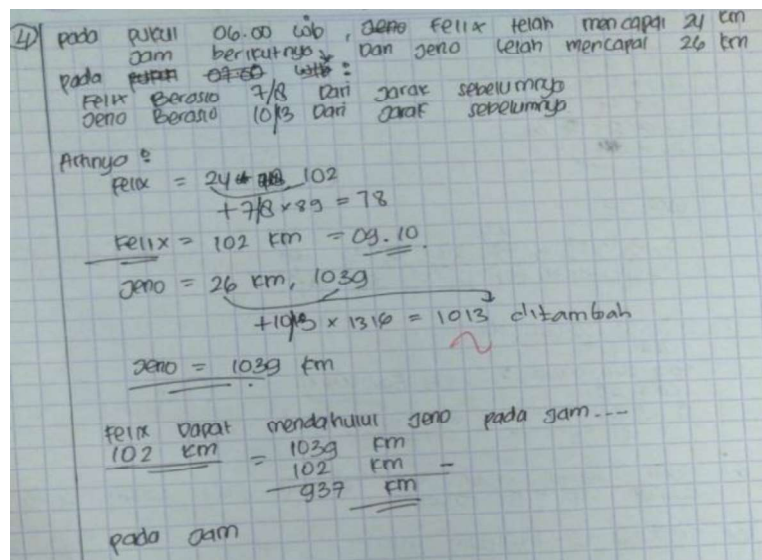 4) pada pukul 06.00 wib, Felix telah mencapai 24 km
Dan Jeno telah mencapai 26 km
pada jam berikutnya :
Felix Berasio 7/8 Dari Jarak sebelumnya
Jeno Berasio 10/13 Dari Jarak sebelumnya
Artinya :
Felix = 24 102
+7/8 × 89 = 78
Felix = 102 km = 09.10
Jeno = 26 km, 1039
+10/13 × 1316 = 1013 ditambah
Jeno = 1039 km
Felix Dapat mendahului Jeno pada jam ....
102 km = 1039 km
102 km -
937 km
pada jam